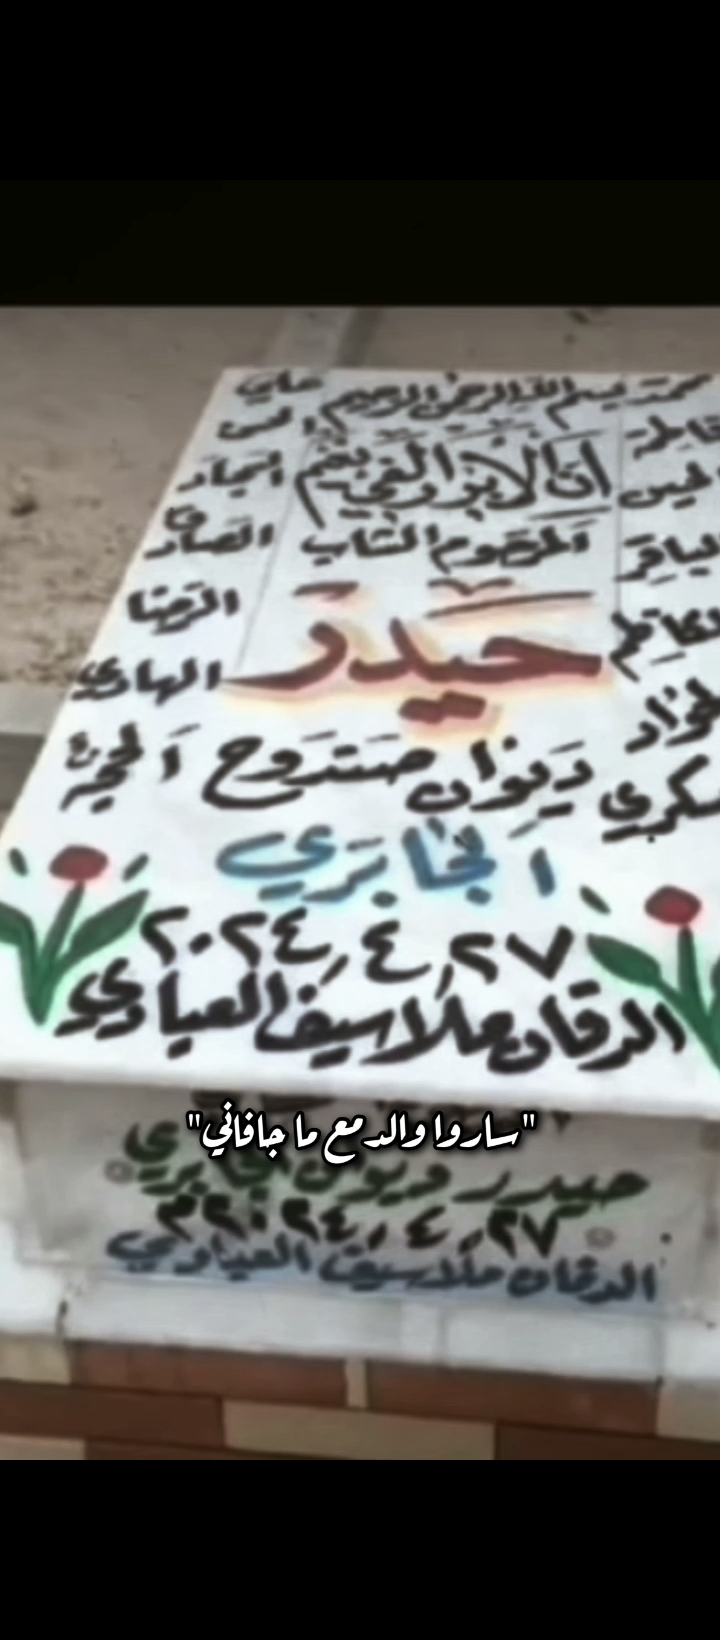 محمد بسم الله الرحمن الرحيم علي
فاطمة الحسن
الحسين إن الأبرار لفي نعيم السجاد
الباقر المرحوم الشاب الصادق
الكاظم حيدر الرضا
الجواد الهادي
العسكري ديوان الحجة
الجابري
٢٠٢٤/٤/٢٧
الدفان ملا سيف العبادي
"ساروا والدمع ما جافاني"
حيدر ديوان الجابري
٢٠٢٤/٤/٢٧م
الدفان ملا سيف العبادي